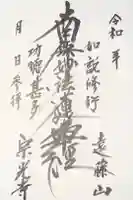 令和 年
如説修行
遠藤山
南無妙法蓮華経
功徳甚多
宗光寺
月 日参拝